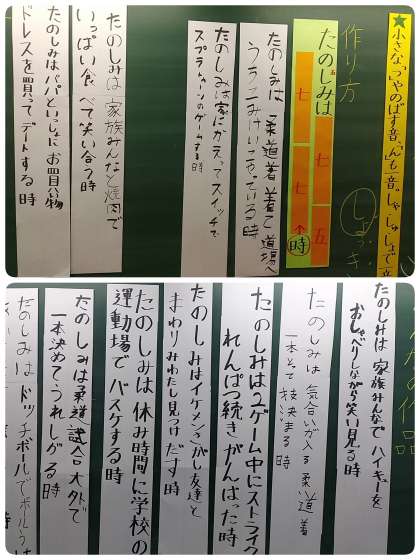 ★小さな「っ」やのばす音、「ん」も一音。しゃ・しゅ・しょで一
作り方
たのしみは
五
七
七
七
五
↑
時
たのしみは 柔道着 着て 道場へ
たのしみは家にかえってスイッチで
スプラトゥーンのゲームする時
たのしみは 家族みんなと焼肉で
いっぱい食べて笑い合う時
たのしみはパパといっしょにお買い物
ドレスを買ってデートする時
作品
たのしみは 家族みんなでハイキューを
おしゃべりしながら笑い見る時
たのしみは 気合いが入る 柔い道着
一本とって 技決まる 時
たのしみは2ゲーム中にストライク
れんぱつ続きがんばった時
たのしみはイケメンさがし友達と
まわりみわたし見つけだす時
たのしみは 休み時間に学校の
運動場で バスケする時
たのしみは柔道試合 大外で
一本決めてうれしがる時
たのしみは ドッチボールでボールうけ